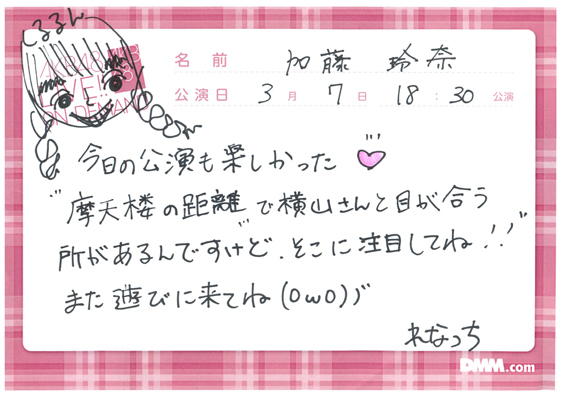 るるん
AKB48
LIVE!!
ON DEMAND
名前 加藤 玲奈
公演日 3月 7日 18:30 公演
今日の公演も楽しかった
"摩天楼の距離"で横山さんと目が合う
所があるんですけど、そこに注目してね!!
また遊びに来てね(OωO)ﾉﾞ
れなっち
DMM.com